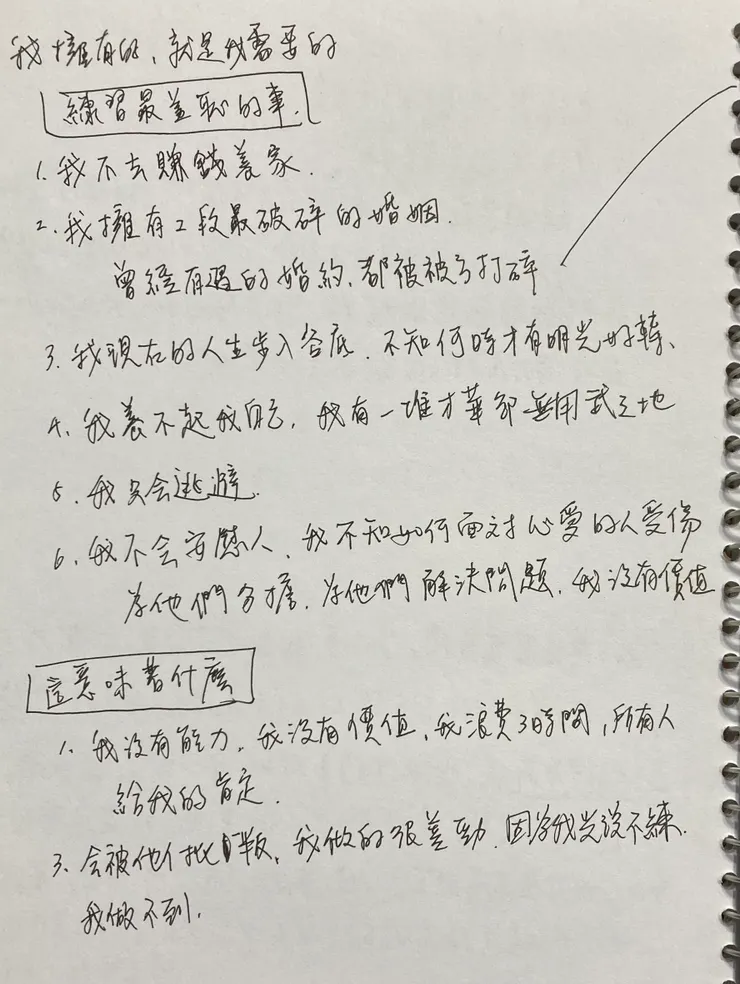 我擁有的，就是我需要的
練習最羞恥的事.
1. 我不去賺錢養家.
2. 我擁有2段最破碎的婚姻.
曾經有過的婚約、都被被了打碎
3. 我現在的人生步入谷底、不知何時才有明光好轉、
4. 我養不起我自己, 我有一堆才華卻無用武之地
5. 我只会逃避.
6. 我不会安慰人、我不知如何面对心愛的人受傷
为他們分擔、为他們解決問題、我沒有價值
這意味著什麼
1. 我沒有能力、我沒有價值、我浪費了時間, 所有人
給我的肯定.
3. 会被他人批評、我做的很差勁、因为我光说不練.
我做不到.